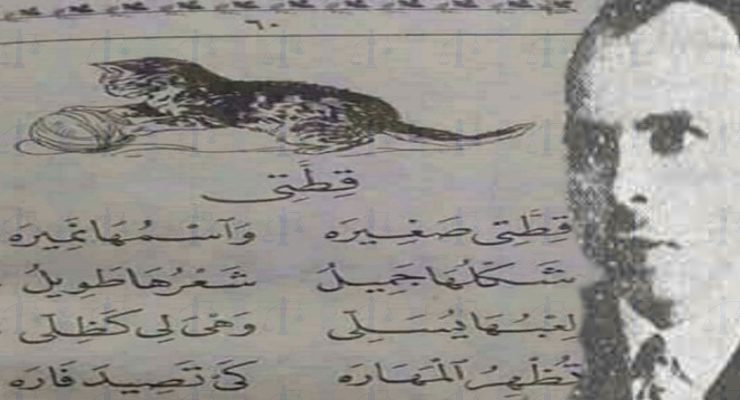 ٦٠
قِطَّتِى
قِطَّتِى صَغِيرَه وَآسْمُهَا نَمِيرَه
شَكْلُهَا جَمِيلُ شَعْرُهَا طَوِيلُ
لِعْبُهَا يُسَلِى وَهْىَ لِى كَظِلِى
تُظْهِرُ الْمَهَارَه كَىْ تَصِيدَ فَارَه